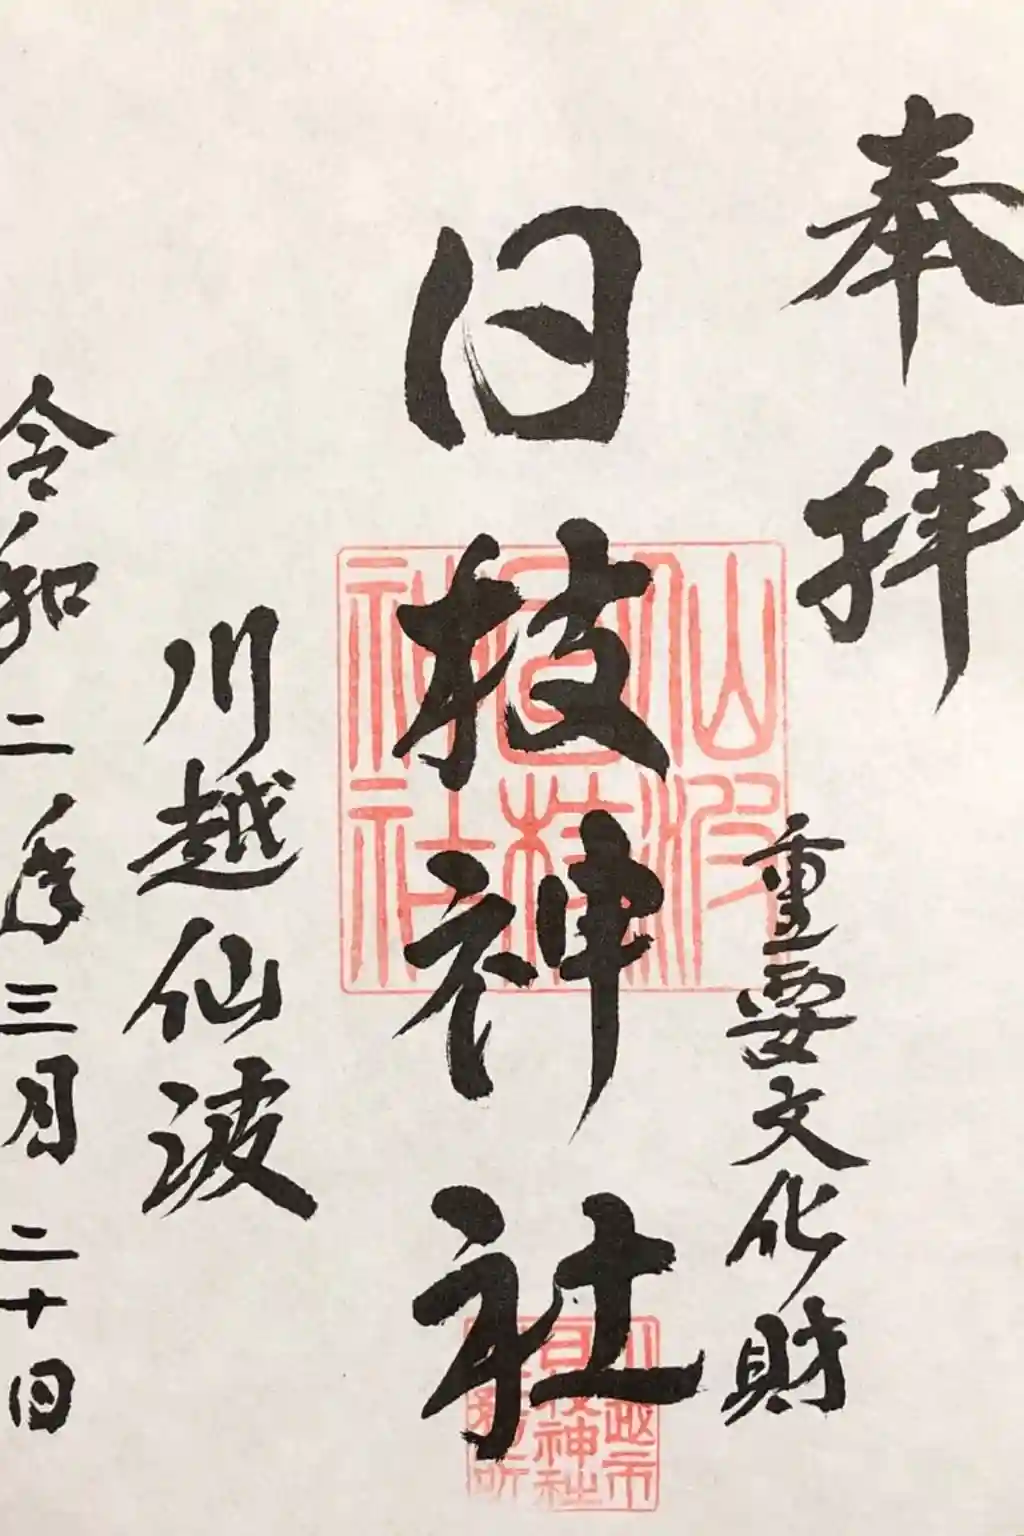 奉拝
重要文化財
日枝神社
川越仙波
令和二年三月二十日
仙波
日枝
神社
川越市
日枝神社